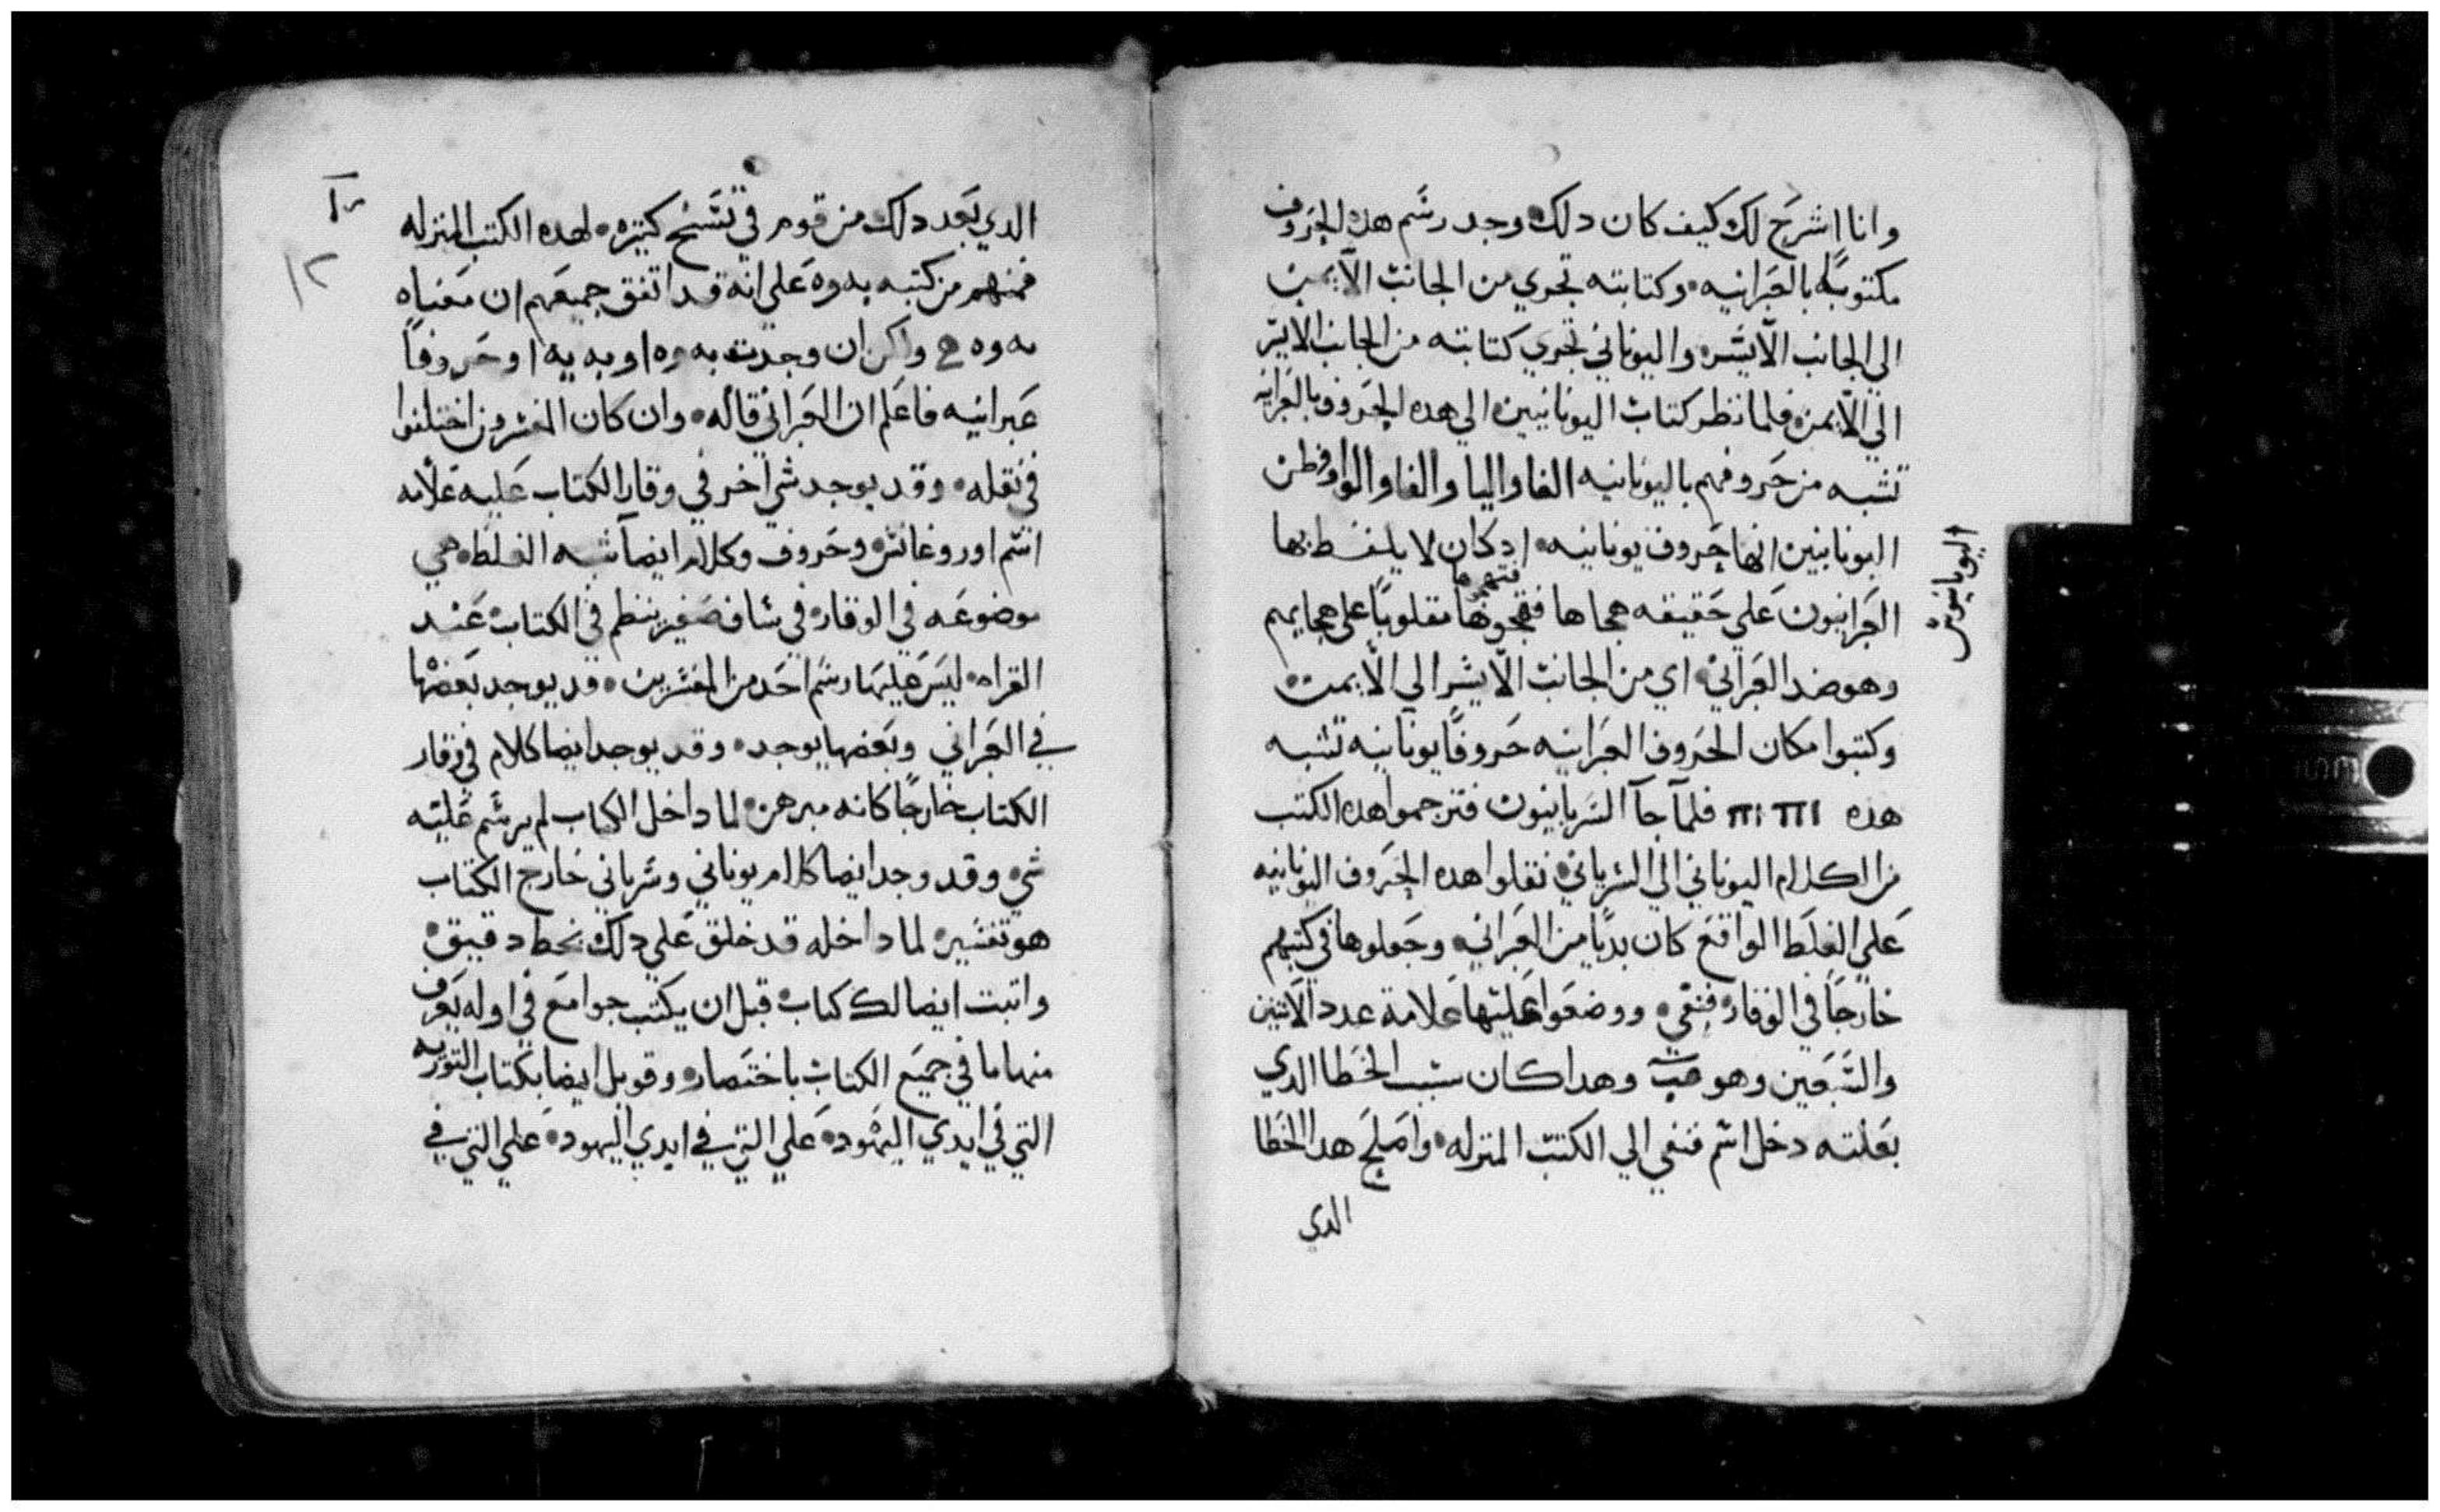 وانا اشرح لك كيف كان دلك وجد رسم هده الحروف
مكتوبة بالعبرانيه وكتابته تجري من الجانب الايمن
الى الجانب الايسر واليوناني تجري كتابته من الجانب الايسر
الي الايمن فلما نظر كتاب اليونانيين الي هده الحروف بالعبرانيه
تشبه من حروفهم باليونانيه الفا واليا والفا والوا وفطن
اليونانيين انها حروف يونانيه ادكان لا يلفظ بها
العبرانيون علي حقيقه هجاها فتهجوها مقلوبا علي هجايهم
اليونانيون
وهو ضد العبراني اي من الجانب الايسر الي الايمن
وكتبوا مكان الحروف العبرانيه حروفا يونانيه تشبه
هده ΠΙΠΙ فلما جا السريانيون فترجموا هده الكتب
من الكلام اليوناني الي السرياني نقلوا هده الحروف اليونانيه
علي الغلط الواقع كان بديا من العبراني وجعلوها في كتبهم
خارجا في الوقار فنفي ووضعوا عليها علامة عدد الاثنين
والسبعين وهو عب وهدا كان سبب الخطا الدي
بعلته دخل اسم فنفي الي الكتب المنزله واصلح هدا الخطا
الدي
١٢
الدي بعد دلك من قوم في نسخ كتيره لهده الكتب المنزله
فمنهم من كتبه يهوه علي انه قد اتفق جميعهم ان معناه
يهوه ولكن ان وجدت يهوه او يه يه او حروفا
عبرانيه فاعلم ان العبراني قاله وان كان المفسرون اختلفوا
في نقله وقد يوجد شي اخر في وقار الكتاب عليه علامه
اسم اوروغانس وحروف وكلام ايضا شبه الغلط هي
موضوعه في الوقار في ساف صغير ينظم في الكتاب عند
القراه ليس عليها رسم احد من المفسرين قد يوجد بعضها
في العبراني وبعضها يوجد وقد يوجد ايضا كلام في وقار
الكتاب خارجا كانه مبرهن لما داخل الكتاب لم يرسم عليه
شي وقد وجد ايضا كلام يوناني وسرياني خارج الكتاب
هو تفسير لما داخله قد خلق علي دلك بخط دقيق
واتبت ايضا لك كتاب قبل ان يكتب جوامع في اوله يعرف
منها ما في جميع الكتاب باختصار وقوبل ايضا بكتاب التوريه
التي في ايدي اليهود علي التي في ايدي اليهود علي التي في